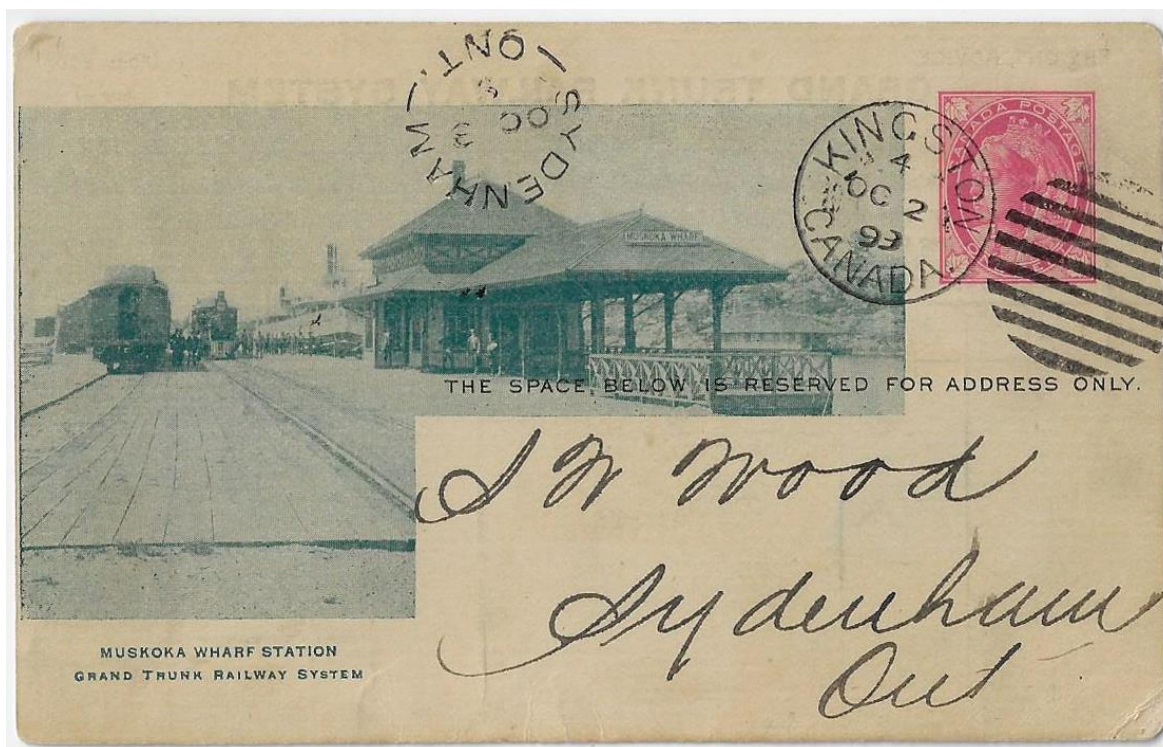 SYDENHAM ONT.
OC 3
KINGSTON
4
OC 2
CANADA.
CANADA POSTAGE
MUSKOKA WHARF
THE SPACE BELOW IS RESERVED FOR ADDRESS ONLY.
S W Wood
Sydenham
Ont
MUSKOKA WHARF STATION
GRAND TRUNK RAILWAY SYSTEM